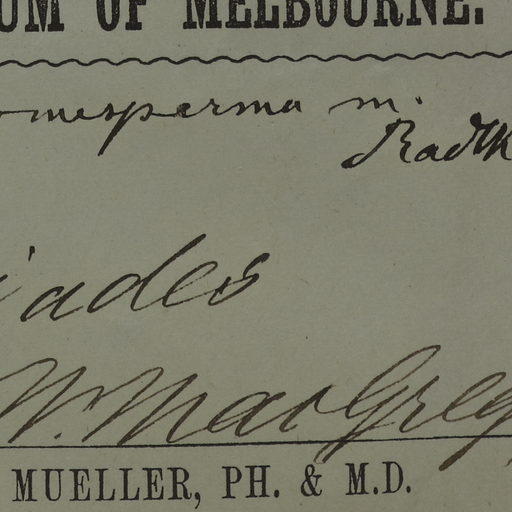 UM OF MELBOURNE.
omesperma m.
Radlk
iades
W. MacGreg
MUELLER, PH. & M.D.